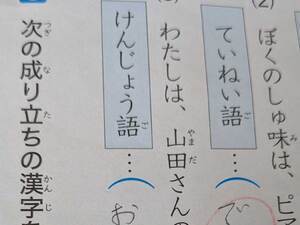 (2)
ぼくのしゅ味は、ピア
ていねい語…(で
わたしは、山田さんの
けんじょう語…(お
次の成り立ちの漢字を